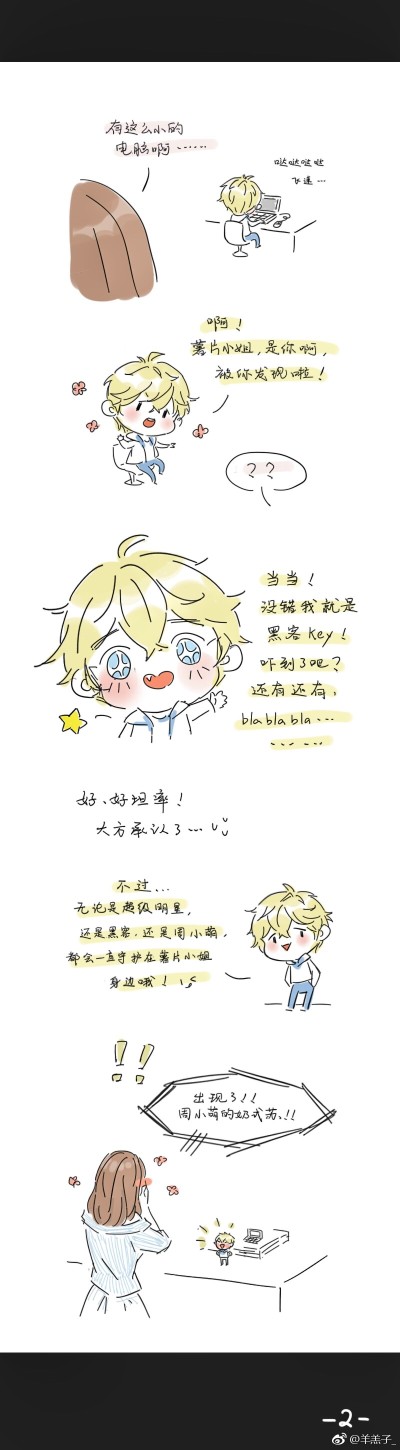 有这么小的
电脑啊……
哒哒哒哒
飞速…
啊！
薯片小姐，是你啊，
被你发现啦！
？？
当当！
没错我就是
黑客key！
吓到了吧？
还有还有，
blablabla…
……
好、好坦率！
大方承认了…
不过…
无论是超级明星，
还是黑客，还是周小萌，
都会一直守护在薯片小姐
身边哦！
!!
出现了！！
周小萌的奶式苏！！
-2-
@羊羔子_